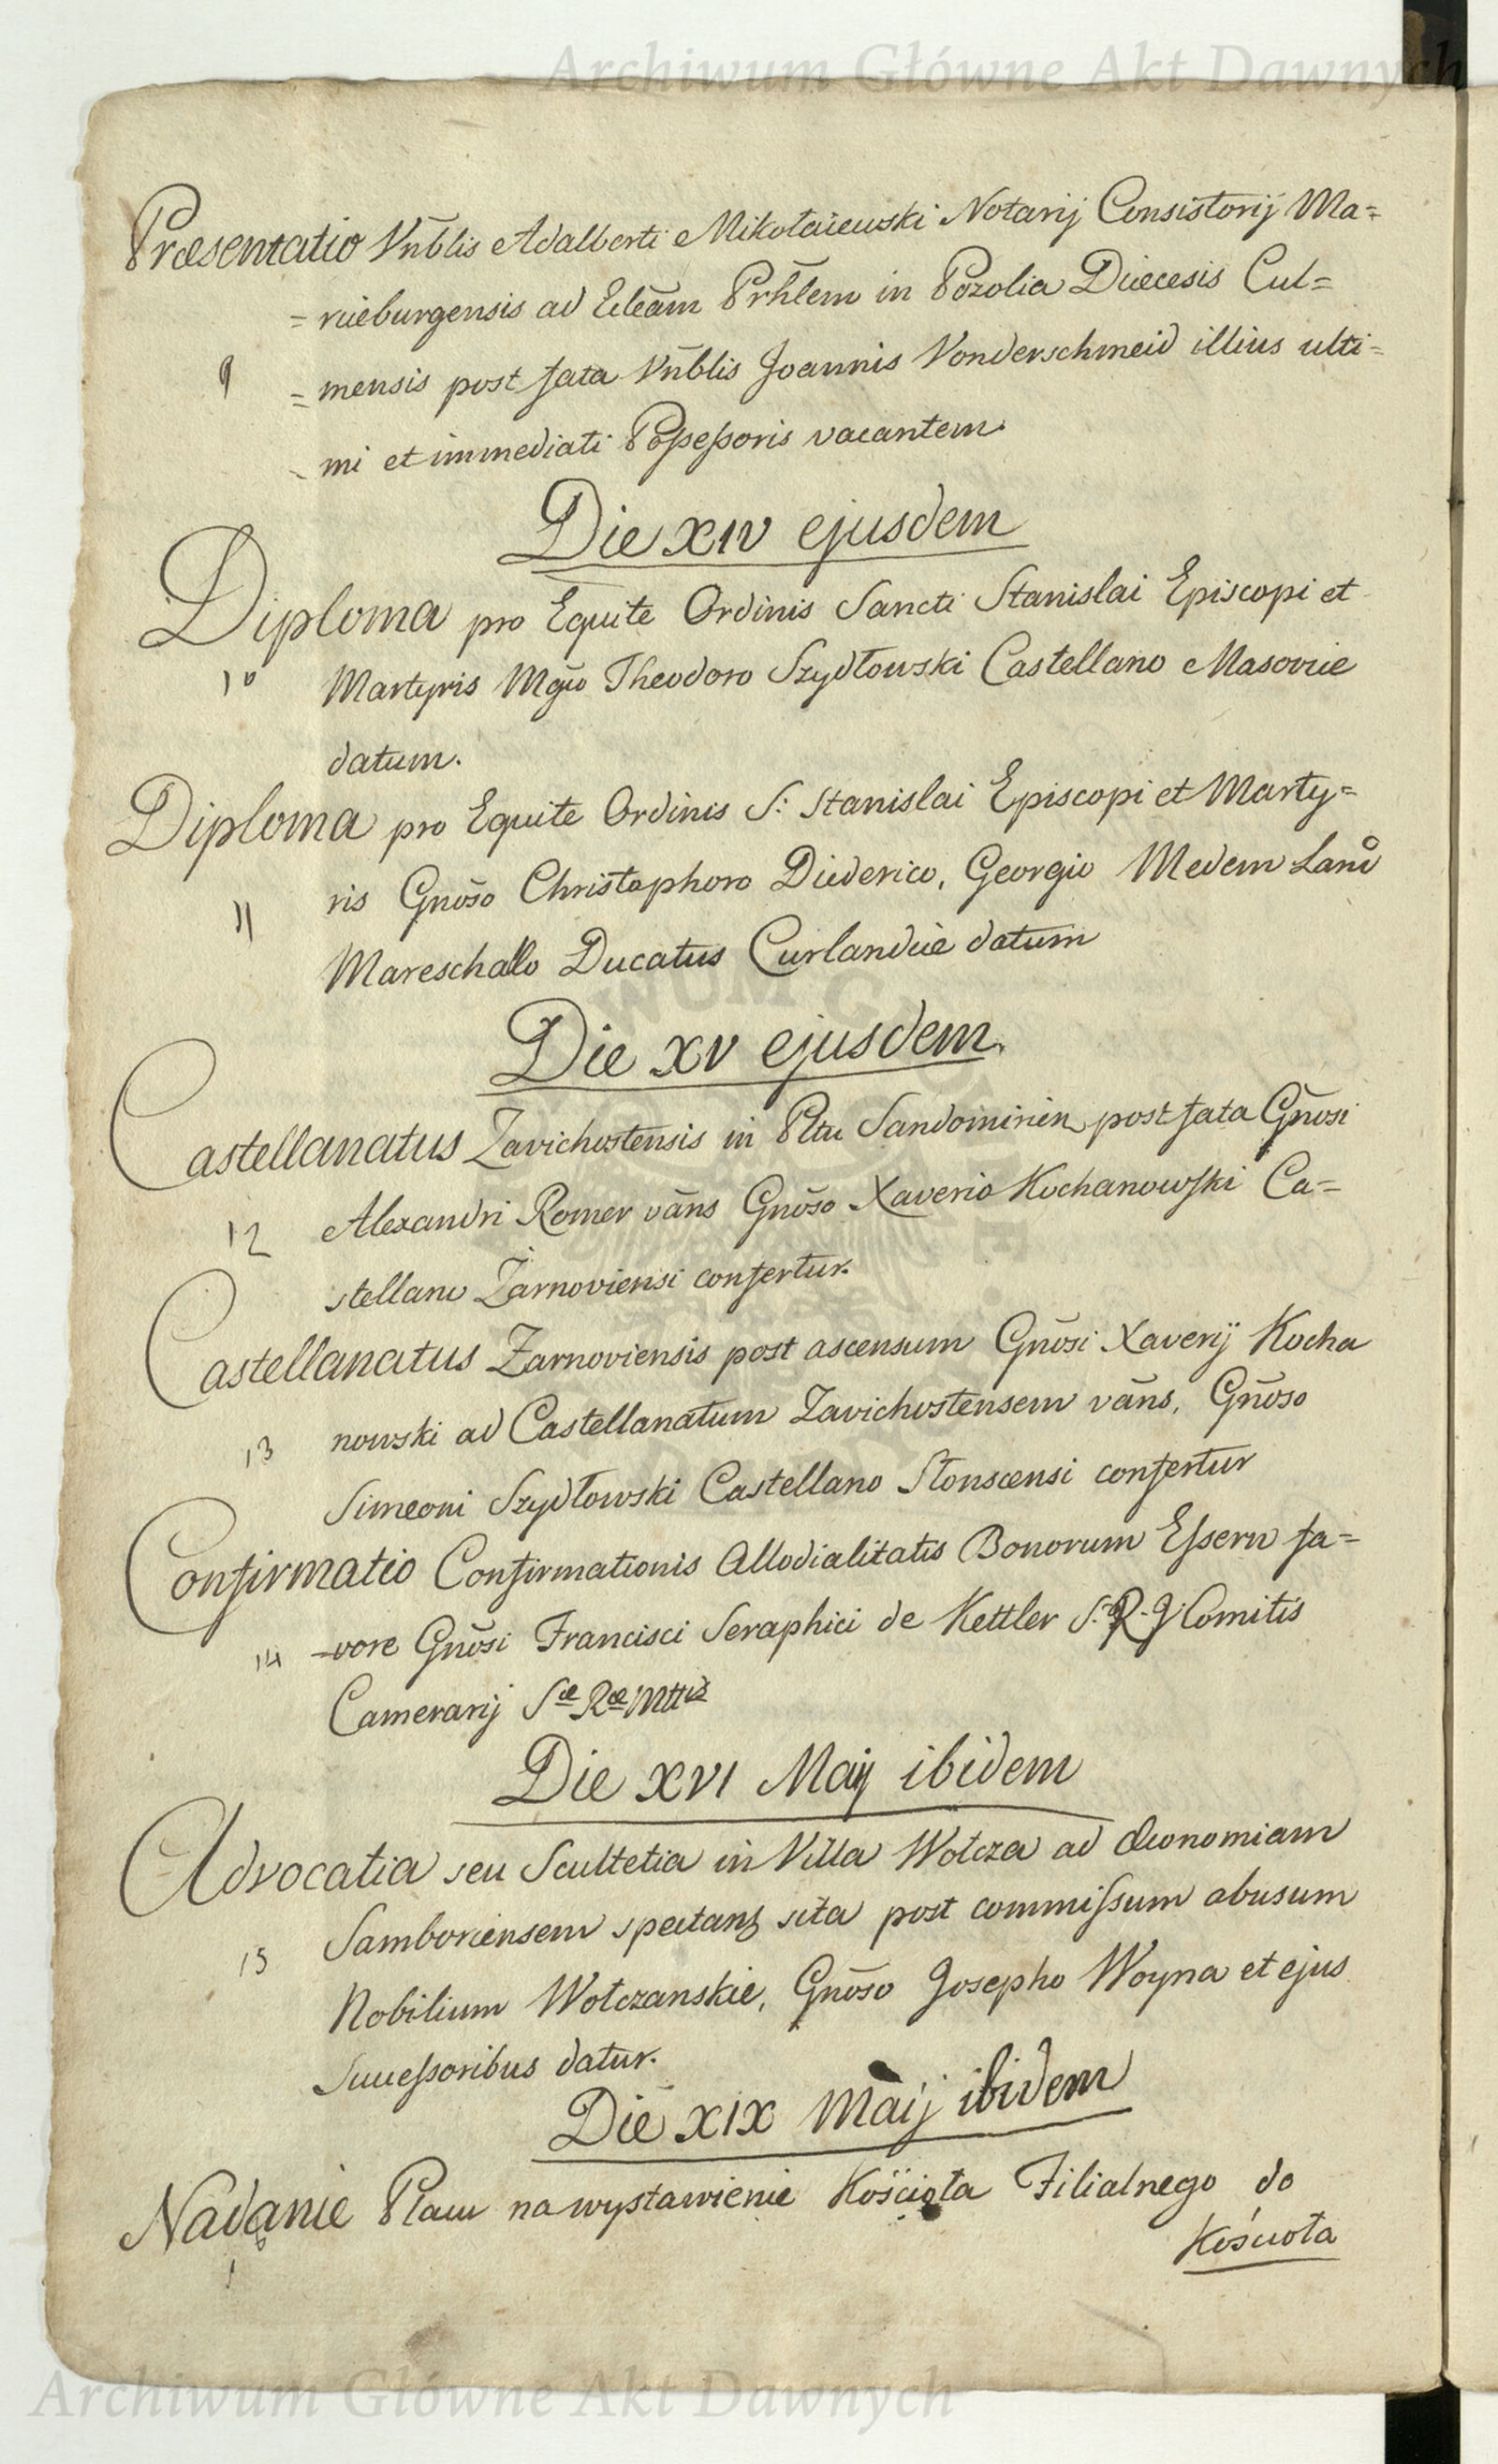 Archiwum Główne Akt Dawnych
Præsentatio Vn̄blis Adalberti Mikołaiewski Notarij Consistorij Ma=
=rieburgensis ad Ecleām Prh̄lem in Pozolia Diæcesis Cul=
9 =mensis post fata Vn̄blis Joannis Vonderschmeid illius ulti=
mi et immediati Possessoris vacantem.
Die XIV ejusdem
Diploma pro Equite Ordinis Sancti Stanislai Episcopi et
10 Martyris Mgco Theodoro Szydłowski Castellano Masoviæ
datum.
Diploma pro Equite Ordinis S: Stanislai Episcopi et Marty=
11 ris Gnōso Christophoro Diederico, Georgio Medem Land
Mareschallo Ducatus Curlandiæ datum
Die XV ejusdem.
Castellanatus Zavichostensis in Pltu Sandomirien post fata Gnōsi
12 Alexandri Romer vāns Gnōso Xaverio Kochanowski Ca=
stellano Żarnoviensi confertur.
Castellanatus Zarnoviensis post ascensum Gnōsi Xaverij Kocha
13 nowski ad Castellanatum Zavichostensem vāns, Gnōso
Simeoni Szydłowski Castellano Słonscensi confertur
Confirmatio Confirmationis Allodialitatis Bonorum Essern fa=
14 =vore Gnōsi Francisci Seraphici de Kettler S. R. J. Comitis
Camerarij Sæ Ræ Mttis
Die XVI Maij ibidem
Advocatia seu Scultetia in Villa Wołcza ad Œconomiam
15 Samboriensem spectans sita post commissum abusum
Nobilium Wołczanskie, Gnōso Josepho Woyna et ejus
Successoribus datur.
Die XIX Maij ibidem
Nadanie Placu na wystawienie Kościoła Filialnego do
16 Kościoła
Archiwum Główne Akt Dawnych